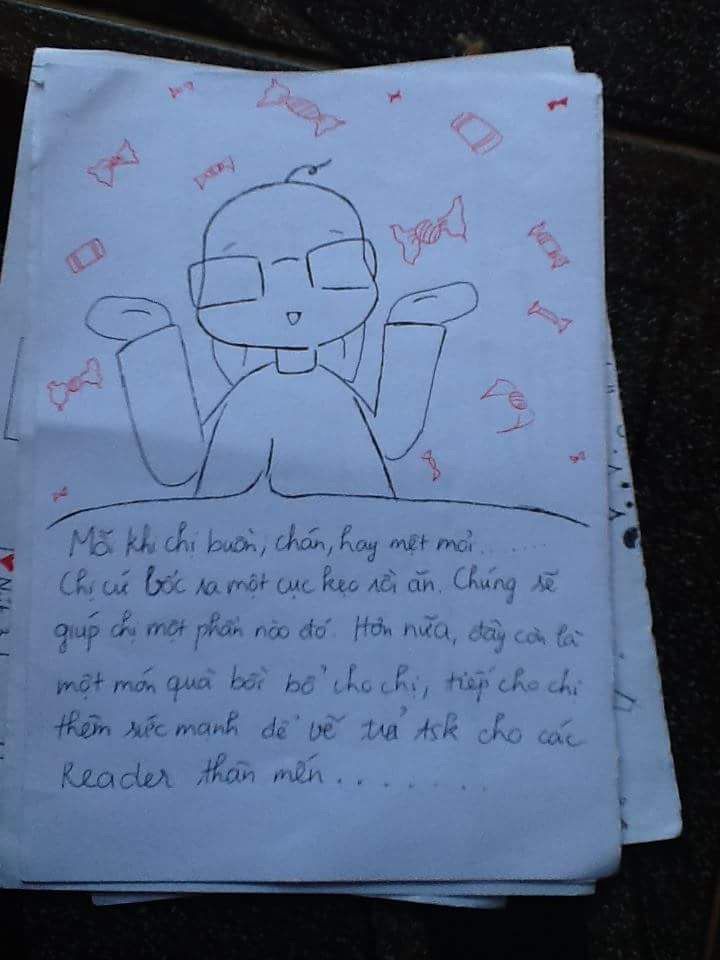 Mỗi khi chị buồn, chán, hay mệt mỏi........
Chị cứ bốc ra một cục kẹo rồi ăn. Chúng sẽ
giúp chị một phần nào đó. Hơn nữa, đây còn là
một món quà bồi bổ cho chị, tiếp cho chị
thêm sức mạnh để vẽ trả Ask cho các
Reader thân mến.........